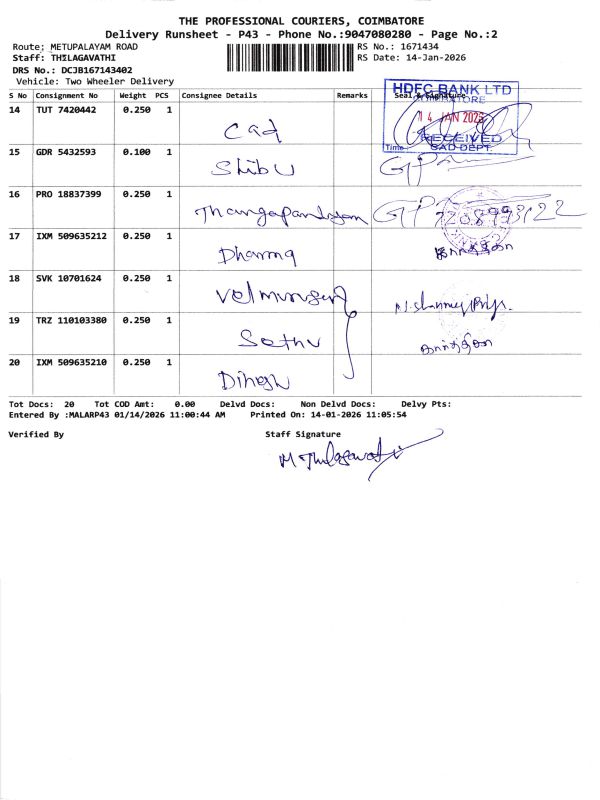 THE PROFESSIONAL COURIERS, COIMBATORE
Delivery Runsheet - P43 - Phone No.:9047080280 - Page No.:2
Route; METUPALAYAM ROAD RS No.: 1671434
Staff: THILAGAVATHI RS Date: 14-Jan-2026
DRS No.: DCJB167143402
Vehicle: Two Wheeler Delivery
S No Consignment No Weight PCS Consignee Details Remarks Seal & Signature
HDFC BANK LTD
COIMBATORE
14 JAN 2026
RECEIVED
Time
SAD-DEPT
14 TUT 7420442 0.250 1 Cad
15 GDR 5432593 0.100 1 Shibu
16 PRO 18837399 0.250 1 Thangapandiyan
17 IXM 509635212 0.250 1 Dharma
18 SVK 10701624 0.250 1 Velmurugan
19 TRZ 110103380 0.250 1 Sethu
20 IXM 509635210 0.250 1 Dinesh
Tot Docs: 20 Tot COD Amt: 0.00 Delvd Docs: Non Delvd Docs: Delvy Pts:
Entered By :MALARP43 01/14/2026 11:00:44 AM Printed On: 14-01-2026 11:05:54
Verified By Staff Signature
M Thilagavathi